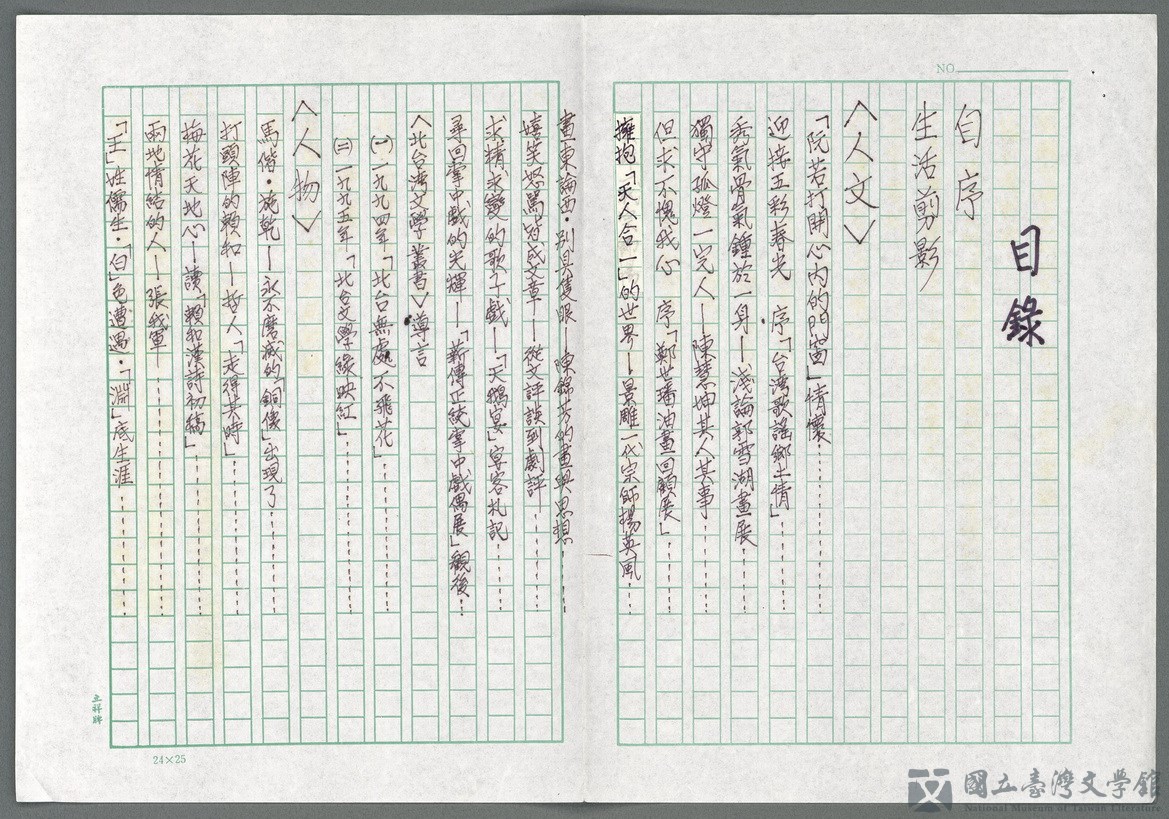 NO
目錄
自序
生活剪影
〈人文〉
「阮若打開心內的門窗」情懷……
迎接五彩春光 序「台湾歌謠鄉土情」……
秀氣骨氣鍾於一身—淺論郭雪湖畫展
獨守孤燈一完人—陳慧坤其人其事……
但求不愧我心 序「鄭世璠油畫回顧展」……
擁抱「天人合一」的世界—景雕一代宗師楊英風……
畫東論西·別具隻眼—陳錦芳的畫與思想……
嬉笑怒罵皆成文章—從文評談到劇評……
求精求變的歌子戲—「天鵝宴」宴客札記……
尋回掌中戲的光輝—「薪傳正統掌中戲偶展」觀後……
〈北台湾文學叢書〉導言
(一)一九九四年「北台無處不飛花」……
(二)一九九五年「北台文學綠映紅」……
〈人物〉
馬偕·施乾—永不磨滅的「銅像」出現了……
打頭陣的賴和—哲人「走得其時」……
梅花天地心—讀「賴和漢詩初稿」……
兩地情結的人—張我軍……
「王」姓儒生·「白」色遭遇·「淵」底生涯……
立祥牌
24×25
國立臺灣文學館
National Museum of Taiwan Literature